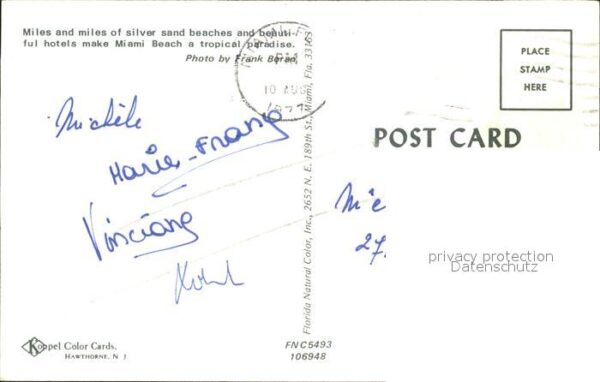 Miles and miles of silver sand beaches and beauti-
ful hotels make Miami Beach a tropical paradise.
Photo by Frank Boran
MIAMI, FL
PM
10 AUG
1977
PLACE
STAMP
HERE
POST CARD
Michèle
Marie-Franç
Vinciane
Florida Natural Color, Inc., 2652 N. E. 189th St., Miami, Fla. 33163
27.
privacy protection
Datenschutz
Koppel Color Cards.
HAWTHORNE, N J
FNC5493
106948